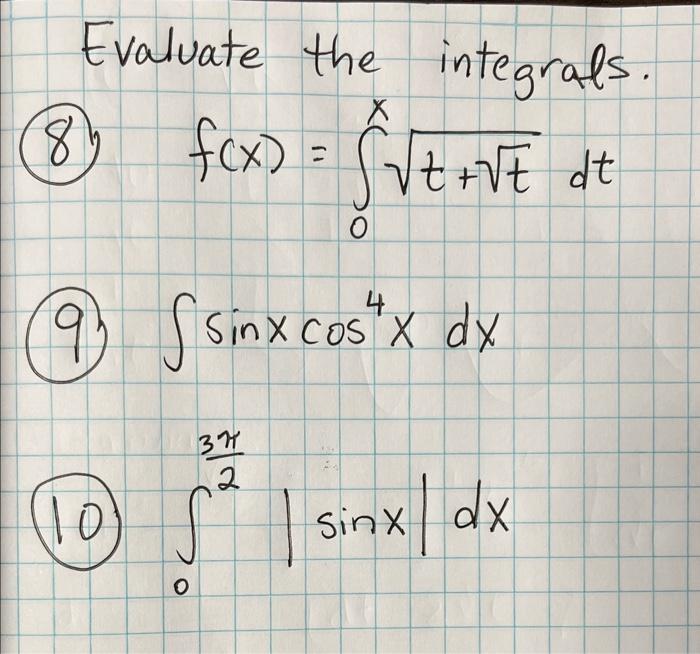 Evaluate the integrals.
8) f(x) = ∫₀ˣ √(t+√t) dt
9) ∫ sinx cos⁴x dx
10) ∫₀^(3π/2) |sinx| dx